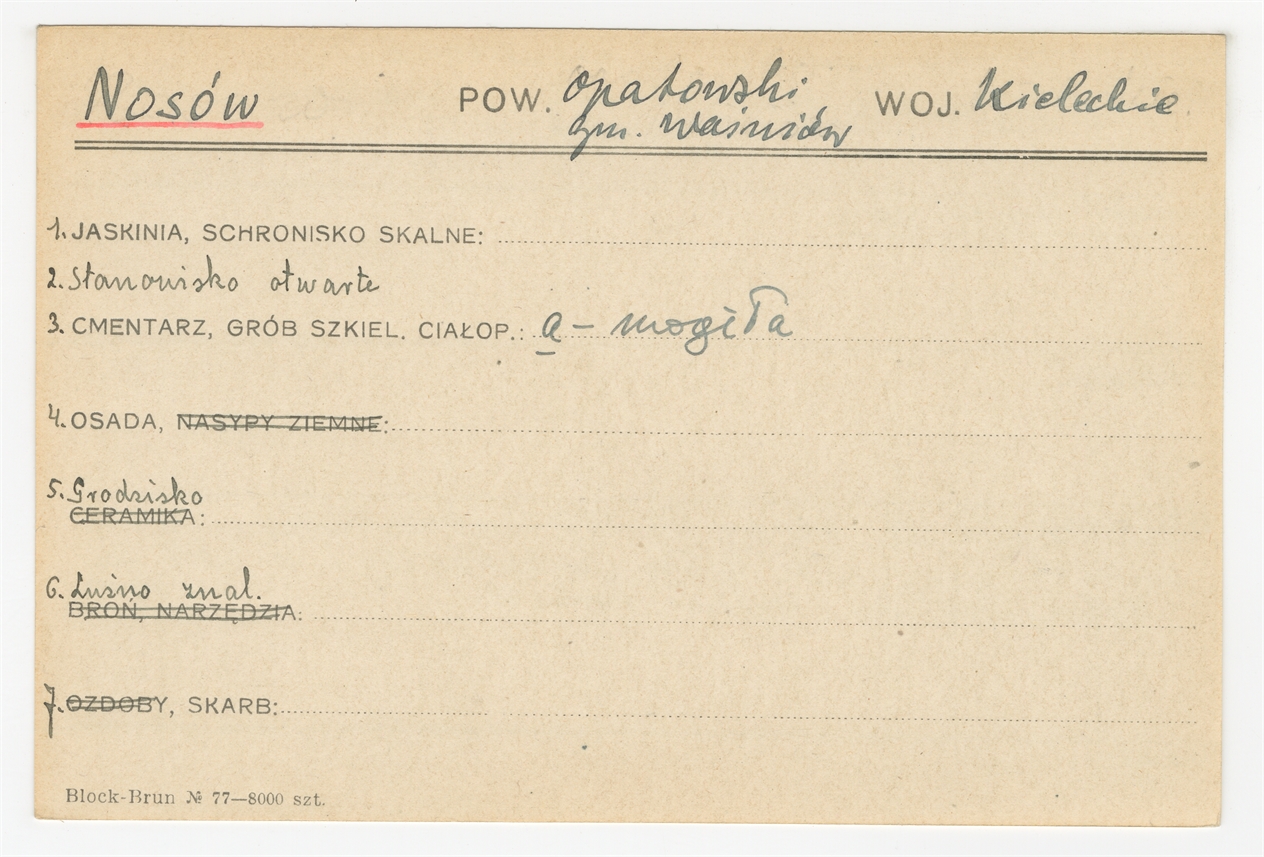 Nosów POW. opatowski WOJ. Kieleckie
gm. Waśniów
1. JASKINIA, SCHRONISKO SKALNE:
2. Stanowisko otwarte
3. CMENTARZ, GRÓB SZKIEL. CIAŁOP.: a – mogiła
4. OSADA, NASYPY ZIEMNE:
5. Grodzisko
CERAMIKA:
6. Luźno znal.
BROŃ, NARZĘDZIA:
7. OZDOBY, SKARB:
Block-Brun № 77—8000 szt.